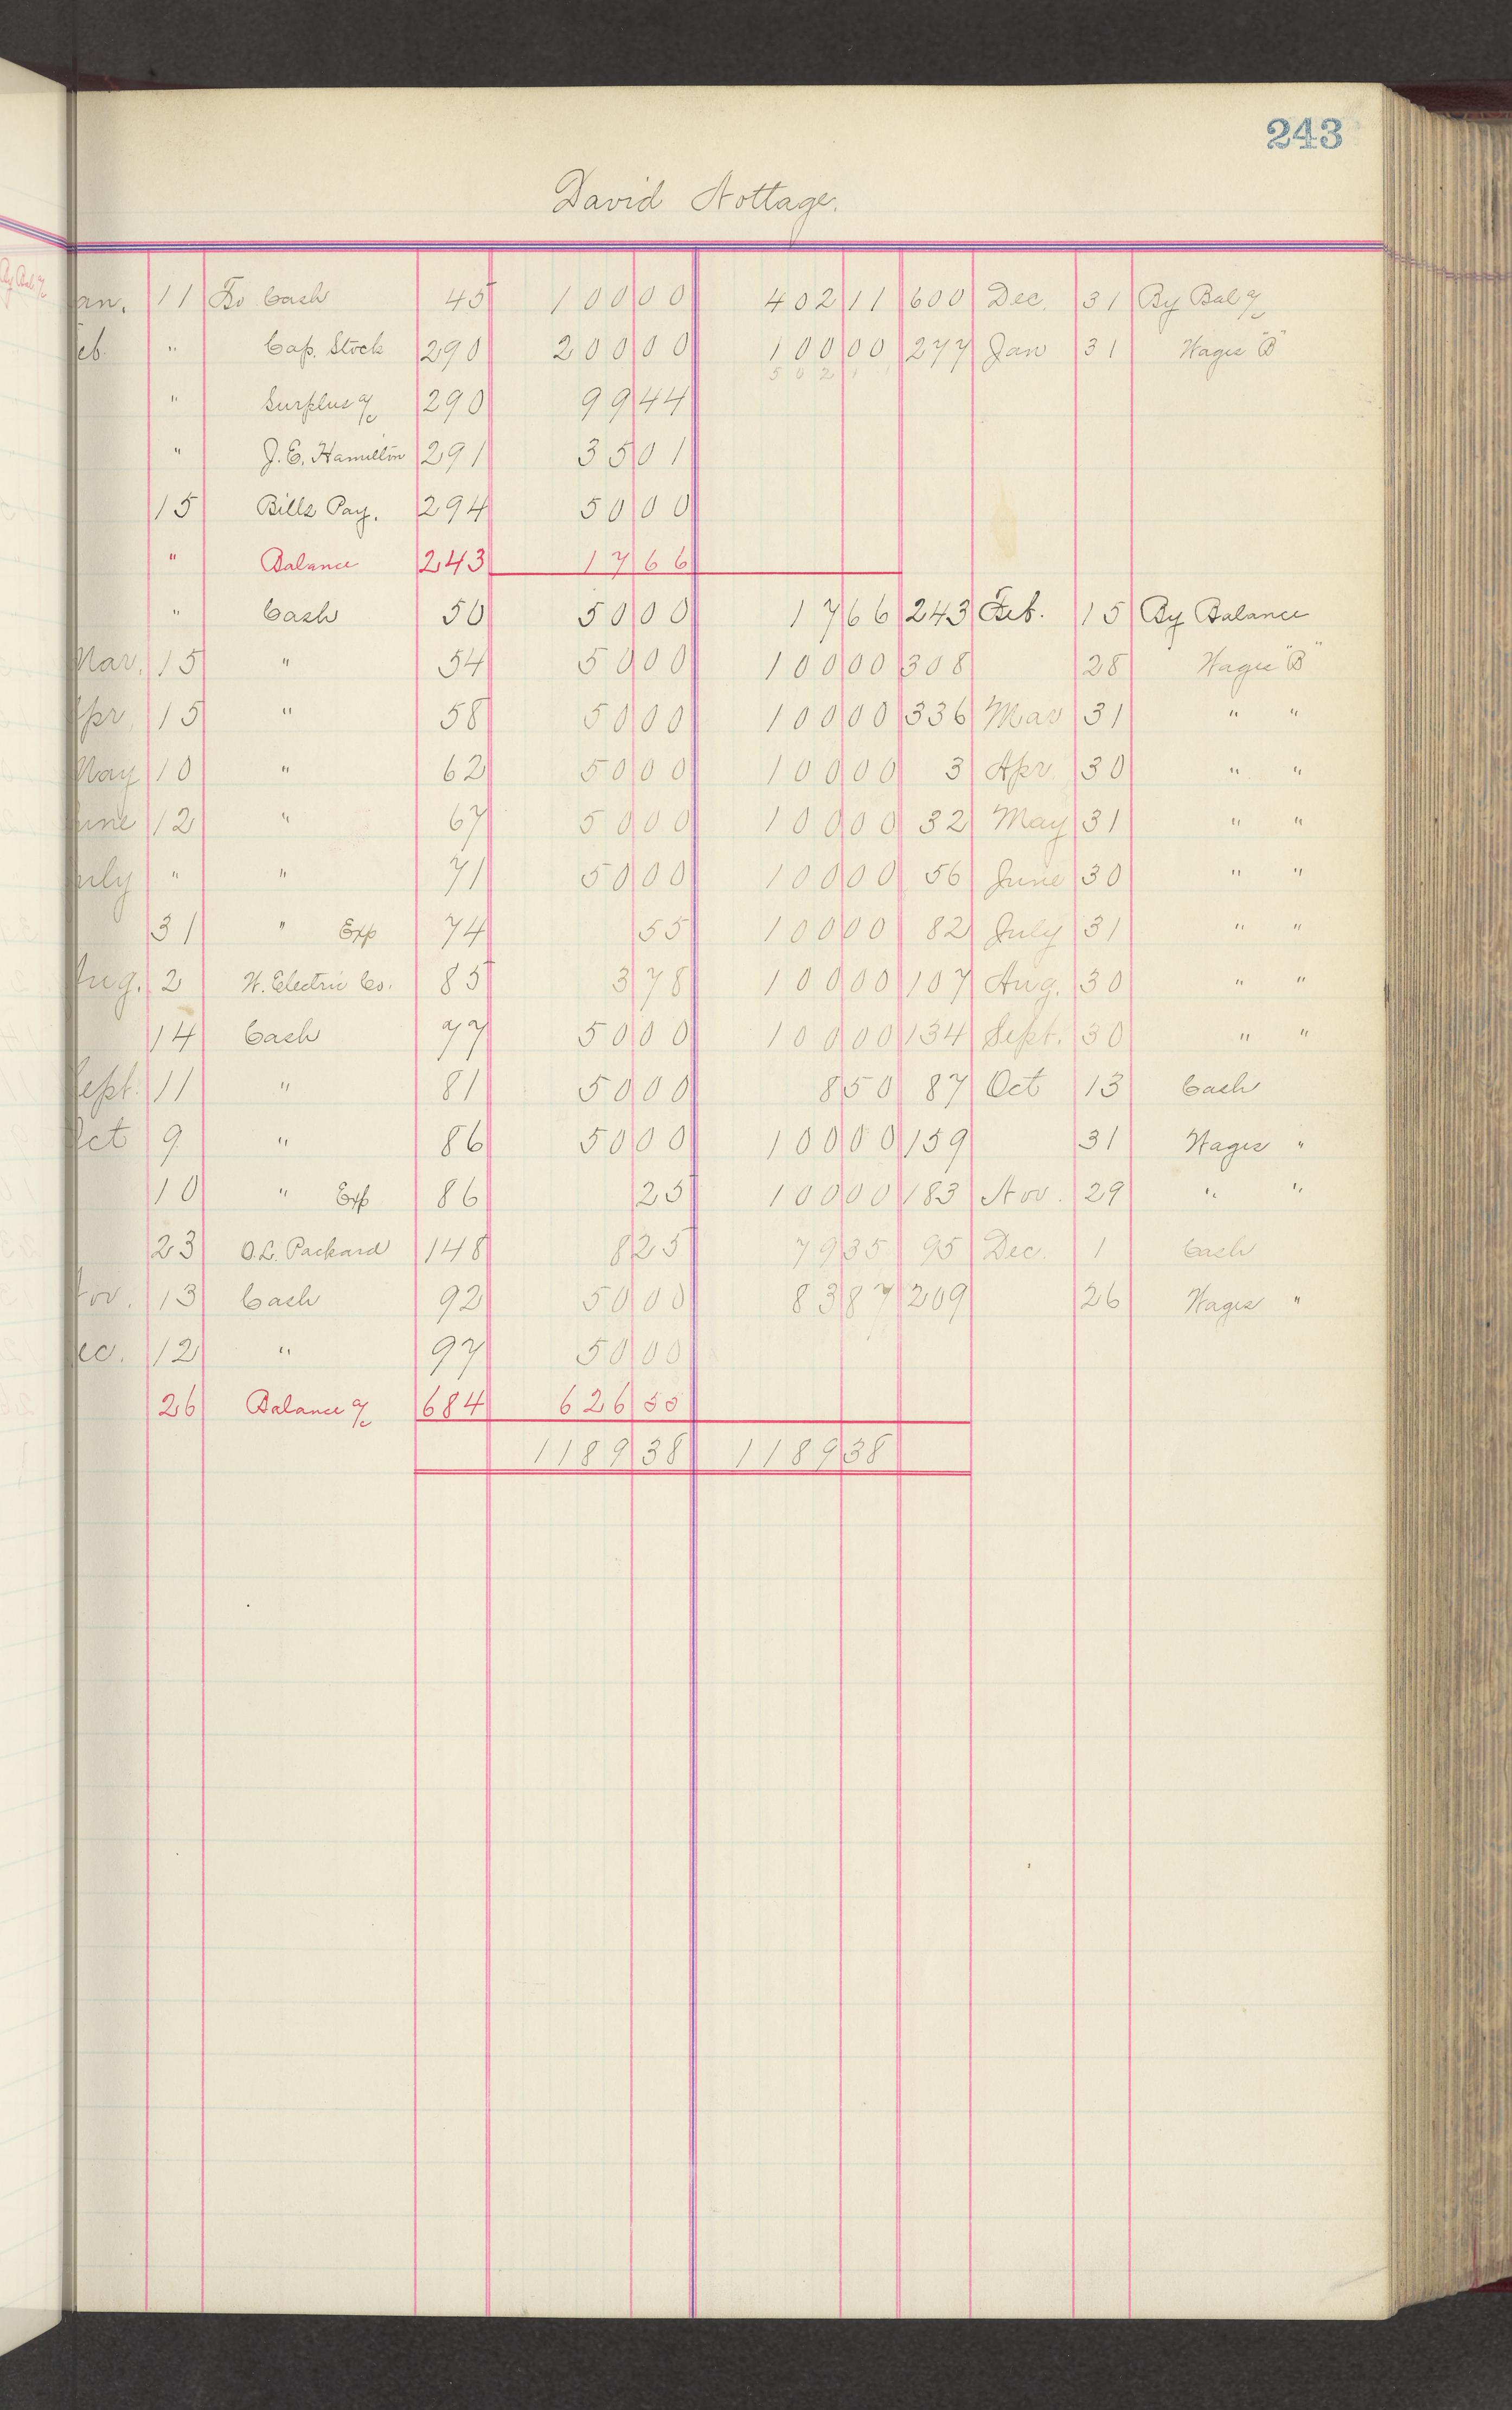 243
David Nottage.
an. 11 To Cash 45 100 00 402 11 600 Dec. 31 By Bal a/c
eb. " Cap. Stock 290 200 00 100 00 277 Jan 31 Wages "B"
502 11
" Surplus a/c 290 99 44
" J. E. Hamilton 291 35 01
15 Bills Pay. 294 50 00
" Balance 243 17 66
" Cash 50 50 00 17 66 243 Feb. 15 By Balance
Mar. 15 " 54 50 00 100 00 308 28 Wages "B"
Apr. 15 " 58 50 00 100 00 336 Mar 31 " "
May 10 " 62 50 00 100 00 3 Apr. 30 " "
June 12 " 67 50 00 100 00 32 May 31 " "
uly " " 71 50 00 100 00 56 June 30 " "
31 " Exp 74 55 100 00 82 July 31 " "
Aug. 2 W. Electric Co. 85 3 78 100 00 107 Aug. 30 " "
14 Cash 77 50 00 100 00 134 Sept. 30 " "
Sept. 11 " 81 50 00 8 50 87 Oct 13 Cash
Oct 9 " 86 50 00 100 00 159 31 Wages "
10 " Exp 86 25 100 00 183 Nov. 29 " "
23 O.L. Packard 148 8 25 79 35 95 Dec. 1 Cash
ov. 13 Cash 92 50 00 83 87 209 26 Wages "
ec. 12 " 97 50 00
26 Balance a/c 684 626 55
1189 38 1189 38